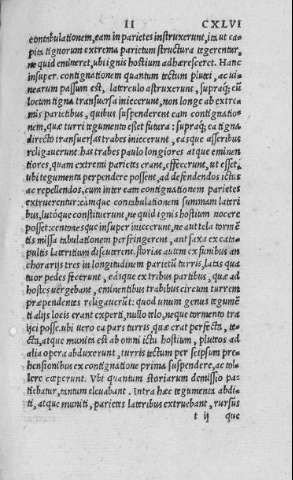 II CXLVI
contabulationem, eam in parietes instruxerunt, ita ut ca-
pita tignorum extrema parietum structura tegerentur,
ne quid emineret, ubi ignis hostium adhæresceret. Hanc
insuper contignationem quantum tectum plutei, ac ui-
nearum passum est, laterculo astruxerunt, supraq; eũ
locum tigna transuersa iniecerunt, non longe ab extre-
mis parietibus, quibus suspenderent eam contignatio-
nem, quæ turri tegumento esset futura: supraq; ea tigna
directo transuersas trabes iniecerunt, easque asseribus
religauerunt: has trabes paulo longiores atque eminen
tiores, quam extremi parietes erant, effecerunt, ut esset,
ubi tegumenta perpendere possent, ad defendendos ictus
ac repellendos, cum inter eam contignationem parietes
extruerentur: eamque contabulationem summam lateri
bus, lutoque constituerunt, ne quid ignis hostium nocere
posset: centones que insuper iniecerunt, ne aut tela tormē
tis missa tabulationem perfringerent, aut saxa ex cata-
pultis lateritium discuterent. storias autem ex funibus an
chorariis tres in longitudinem parietũ turris, latas qua
tuor pedes fecerunt, easque ex tribus partibus, quæ ad
hostes uergebant, eminentibus trabibus circum turrem
præpendentes religauerūt: quod unum genus tegumē
ti aliis locis erant experti, nullo telo, neque tormento tra
iici posse. ubi uero ea pars turris quæ erat perfecta, te-
cta, atque munita est ab omni ictu hostium, pluteos ad
alia opera abduxerunt, turris tectum per seipsum pre-
hensionibus ex contignatione prima suspendere, ac tol-
lere cœperunt. Vbi quantum storiarum demissio pa-
tiebatur, tantum eleuabant. Intra hæc tegumenta abdi-
ti, atque muniti, parietes lateribus extruebant, rursus
t ij que